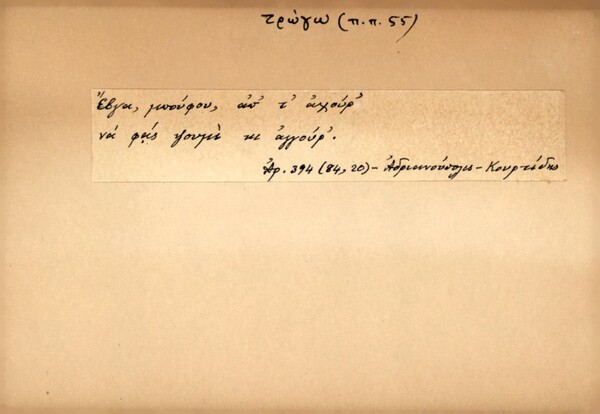 τρώγω (π.π. 55)
Ἔβγα, μπούφου, ἀπ' τ' ἀχούρ'
νά φᾴς ψουμὶ κι ἀγγούρ'.
Ἀρ. 394 (84, 20) - Ἀδριανούπολις - Κουρτίδης